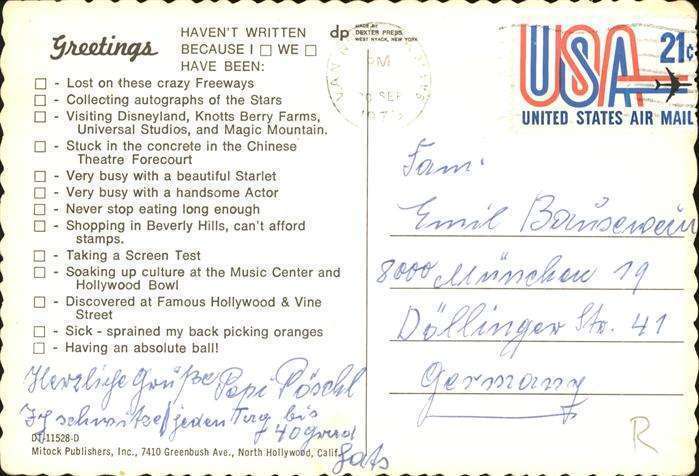 Greetings
HAVEN'T WRITTEN
BECAUSE I □ WE □
HAVE BEEN:
□ - Lost on these crazy Freeways
□ - Collecting autographs of the Stars
□ - Visiting Disneyland, Knotts Berry Farms,
Universal Studios, and Magic Mountain.
□ - Stuck in the concrete in the Chinese
Theatre Forecourt
□ - Very busy with a beautiful Starlet
□ - Very busy with a handsome Actor
□ - Never stop eating long enough
□ - Shopping in Beverly Hills, can't afford
stamps.
□ - Taking a Screen Test
□ - Soaking up culture at the Music Center and
Hollywood Bowl
□ - Discovered at Famous Hollywood & Vine
Street
□ - Sick - sprained my back picking oranges
□ - Having an absolute ball!
Herzliche Grüße Pepi Pöschl
Ich schwitze jeden Tag bis
+ 40 grad
DT-11528-D
Mitock Publishers, Inc., 7410 Greenbush Ave., North Hollywood, Calif.
dp
MADE BY
DEXTER PRESS
WEST NYACK, NEW YORK
PM
SEP
USA
21c
UNITED STATES AIR MAIL
Fam.
Emil Bauserwein
8000 München 19
Döllinger Str. 41
Germany
R